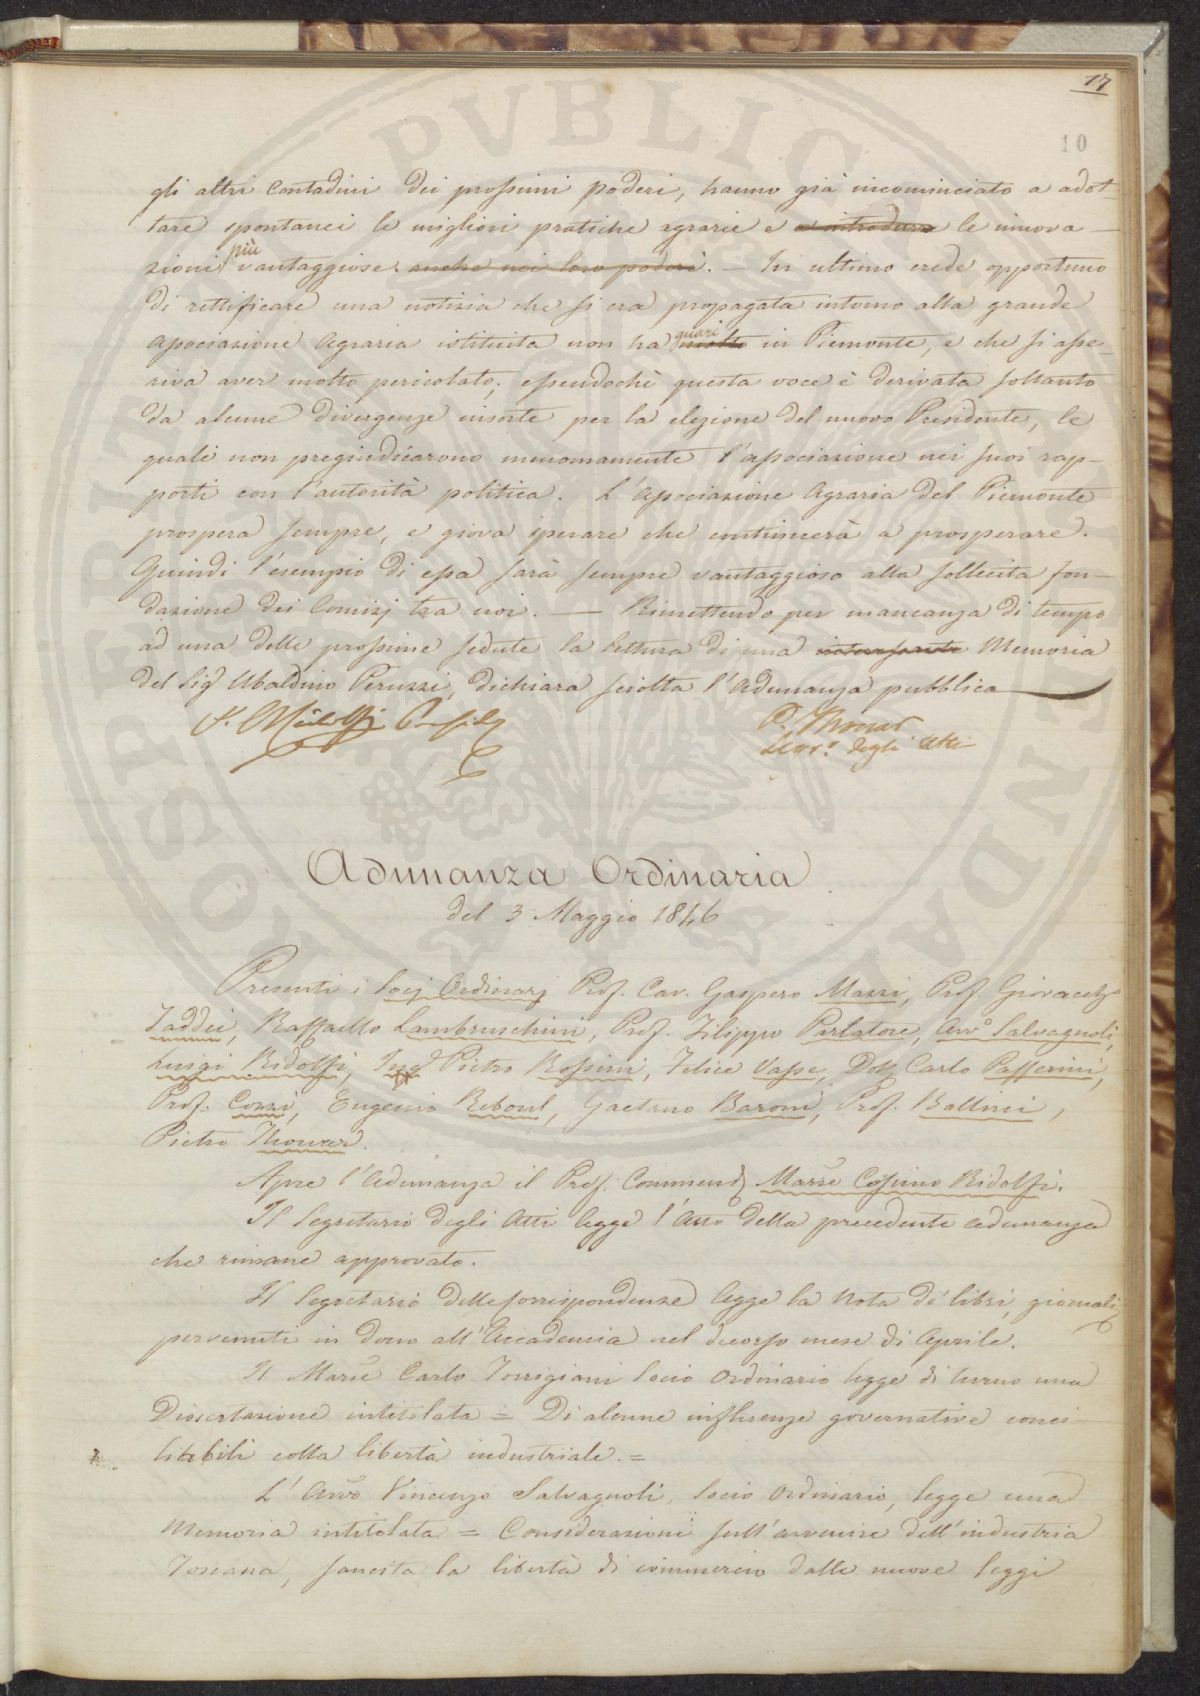 17
10
gli altri Contadini dei prossimi poderi, hanno già incominciato a adot-
tare spontanei le migliori pratiche agrarie e a introdurre le innova-
zioni più vantaggiose anche nei loro poderi. — In ultimo crede opportuno
di rettificare una notizia che si era propagata intorno alla grande
associazione Agraria istituita non ha guari molto in Piemonte, e che si asse-
riva aver molto pericolato; essendochè questa voce è derivata soltanto
da alcune divergenze insorte per la elezione del nuovo Presidente, le
quali non pregiudicarono menomamente l'associazione nei suoi rap-
porti con l'autorità politica. L'Associazione Agraria del Piemonte
prospera sempre, e giova sperare che continuerà a prosperare.
Quindi l'esempio di essa sarà sempre vantaggioso alla sollecita fon-
dazione dei Comizj tra noi. — Rimettendo per mancanza di tempo
ad una delle prossime sedute la lettura di una interessante Memoria
del Sig Ubaldino Peruzzi, dichiara sciolta l'Adunanza pubblica
C. Ridolfi Presid
P. Thouar
Segr.o degli Atti
Adunanza Ordinaria
del 3 Maggio 1846
Presenti i Socj Ordinarj Prof. Cav. Gaspero Mazzi, Prof. Giovacchº
Taddei, Raffaello Lambruschini, Prof. Filippo Parlatore, Avvº Salvagnoli,
Luigi Ridolfi, Ingº Pietro Rossini, Felice Vasse, Dott Carlo Passerini,
Prof. Cozzi, Eugenio Reboul, Gaetano Baroni, Prof. Ballini,
Pietro Thouar.
Apre l'Adunanza il Prof. Commend. Marse Cosimo Ridolfi.
Il Segretario degli Atti legge l'Atto della precedente adunanza
che rimane approvato.
Il Segretario delle Corrispondenze legge la Nota de' libri, giornali
pervenuti in dono all'Accademia nel decorso mese di Aprile.
Il Marse Carlo Torrigiani Socio Ordinario legge di turno una
Dissertazione intitolata = Di alcune influenze governative conci
liabili colla libertà industriale. =
L'Avvo Vincenzo Salvagnoli, Socio Ordinario, legge una
Memoria intitolata = Considerazioni sull'avvenire dell'industria
Toscana, sancita la libertà di commercio dalle nuove leggi